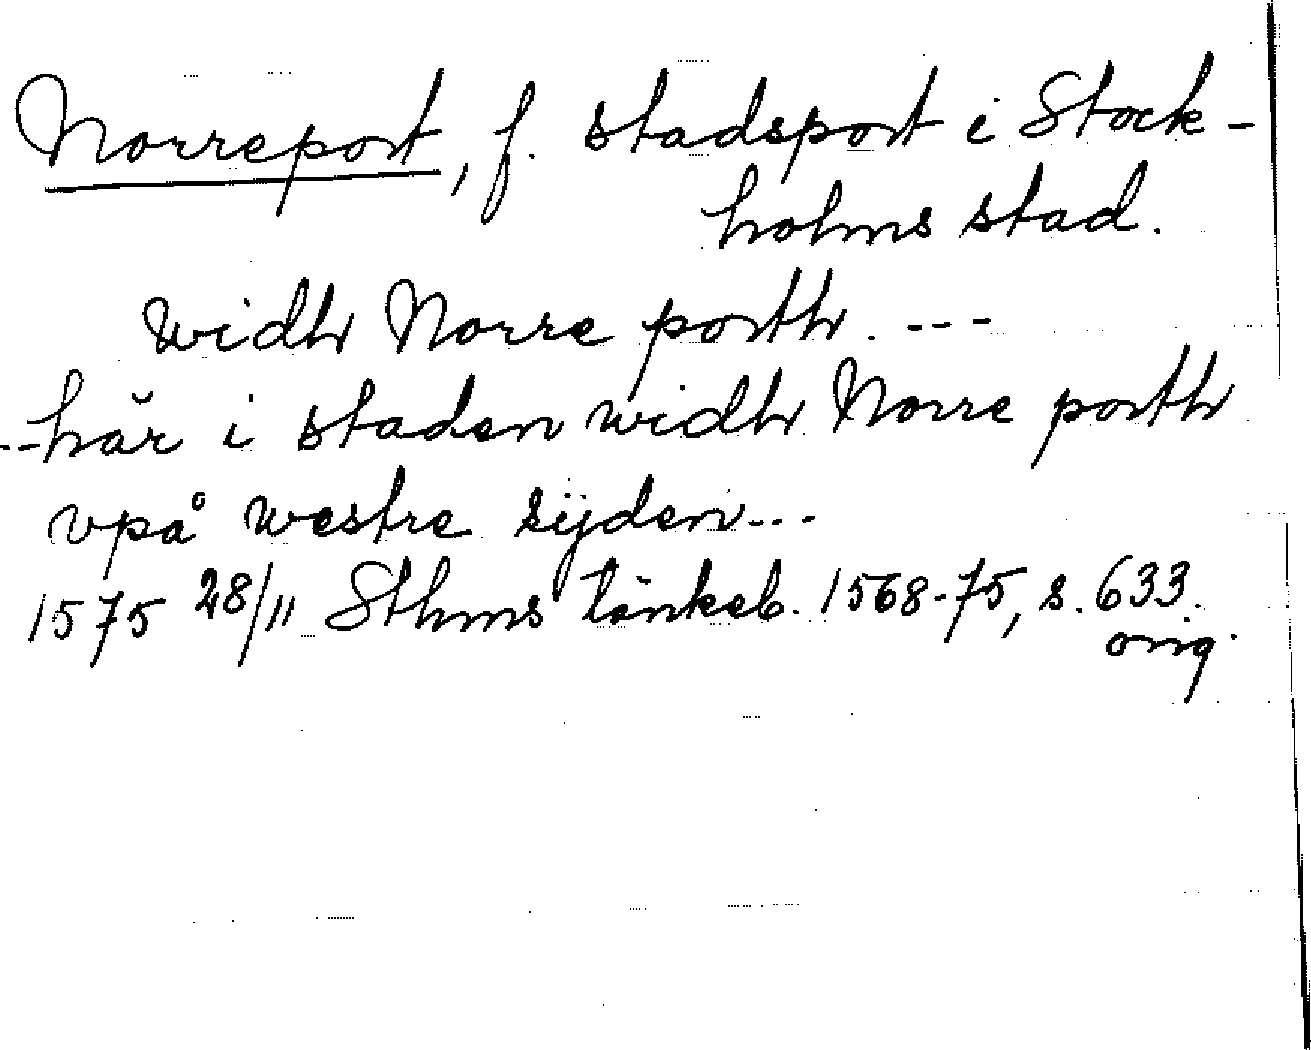 Norreport, f. stadsport i Stock-
holms stad.
widh Norre porth. ---
--här i staden widh Norre porth
vpå westre sijden...
1575 28/11 Sthms tänkeb. 1568-75, s. 633.
orig.